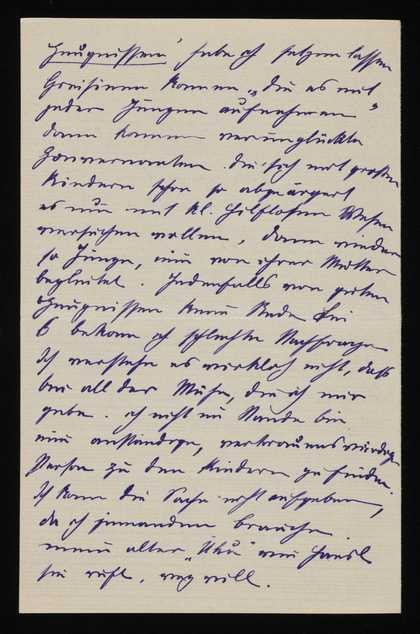 Zeugnissen" habe ich setzen lassen
Greisinen kamen „die es mit
jeder Jungen aufnehmen"
dann kommen verunglückte
Gouvernanten die sich mit großen
Kindern schon so abgeärgert
es nun mit kl. hilflosen Wesen
versuchen wollen, dann wieder
so Junge, nur von ihrer Mutter
begleitet. Jedenfalls von guten
Zeugnissen keine Rede bei
6 bekam ich schlechte Nachfrage
Ich verstehe es wirklich nicht, daß
bei all der Mühe, die ich mir
gebe. ich nicht im Stande bin
eine anständige, vertrauenswürdige
Person zu den Kindern zu finden.
Ich kann die Sache nicht aufgeben,
da ich jemanden brauche.
meine alte „Uku" wie Hansl
sie ruft, weg will.